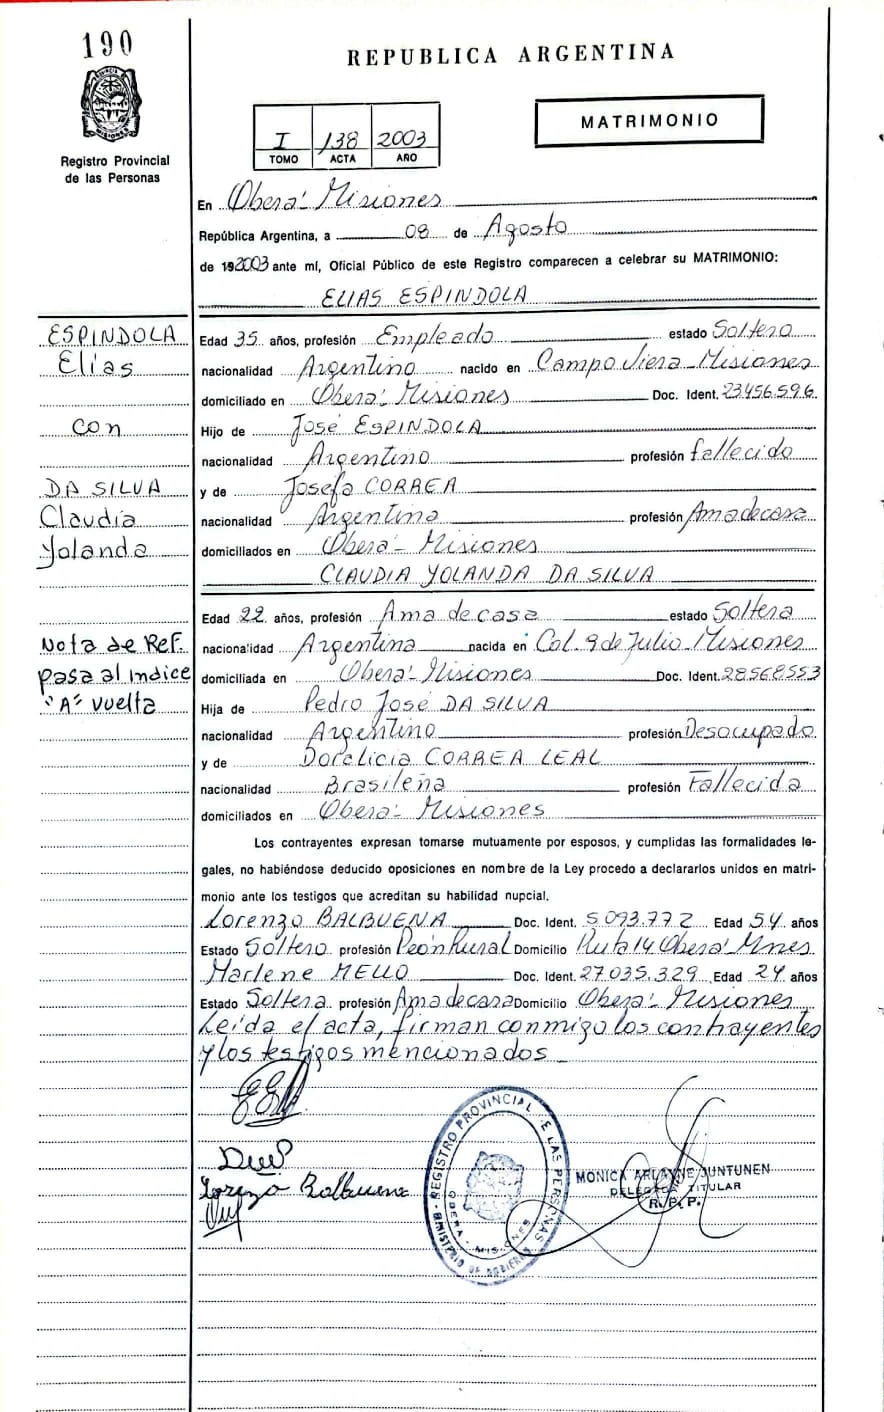 190
REPUBLICA ARGENTINA
I 138 2003
TOMO ACTA AÑO
MATRIMONIO
Registro Provincial
de las Personas
En Oberá - Misiones
República Argentina, a 08 de Agosto
de 192003 ante mí, Oficial Público de este Registro comparecen a celebrar su MATRIMONIO:
ELIAS ESPINDOLA
ESPINDOLA
Elías
con
DA SILVA
Claudia
Yolanda
Nota de Ref.
pasa al indice
"A" vuelta
Edad 35 años, profesión Empleado estado Soltero
nacionalidad Argentino nacido en Campo Viera - Misiones
domiciliado en Oberá - Misiones Doc. Ident. 23.456.596.
Hijo de José ESPINDOLA
nacionalidad Argentino profesión fallecido
y de Josefa CORREA
nacionalidad Argentina profesión Ama de casa
domiciliados en Oberá - Misiones
CLAUDIA YOLANDA DA SILVA
Edad 22 años, profesión Ama de casa estado Soltera
nacionalidad Argentina nacida en Col. 9 de Julio Misiones
domiciliada en Oberá - Misiones Doc. Ident. 28568553
Hija de Pedro José DA SILVA
nacionalidad Argentino profesión Desocupado
y de Doralicia CORREA LEAL
nacionalidad Brasileña profesión Fallecida
domiciliados en Oberá - Misiones
Los contrayentes expresan tomarse mutuamente por esposos, y cumplidas las formalidades le-
gales, no habiéndose deducido oposiciones en nombre de la Ley procedo a declararlos unidos en matri-
monio ante los testigos que acreditan su habilidad nupcial.
Lorenzo BALBUENA Doc. Ident. 5.093.772 Edad 54 años
Estado Soltero profesión Peón Rural Domicilio Ruta 14 Oberá Mnes
Marlene MELLO Doc. Ident. 27.035.329 Edad 24 años
Estado Soltera profesión Ama de casa Domicilio Oberá - Misiones
Leída el acta, firman conmigo los contrayentes
y los testigos mencionados
Lorenzo Balbuena
REGISTRO PROVINCIAL DE LAS PERSONAS
OBERA - MISIONES
MINISTERIO DE GOBIERNO
MONICA ARLAYNE JUNTUNEN
DELEGADA TITULAR
R. P. P.